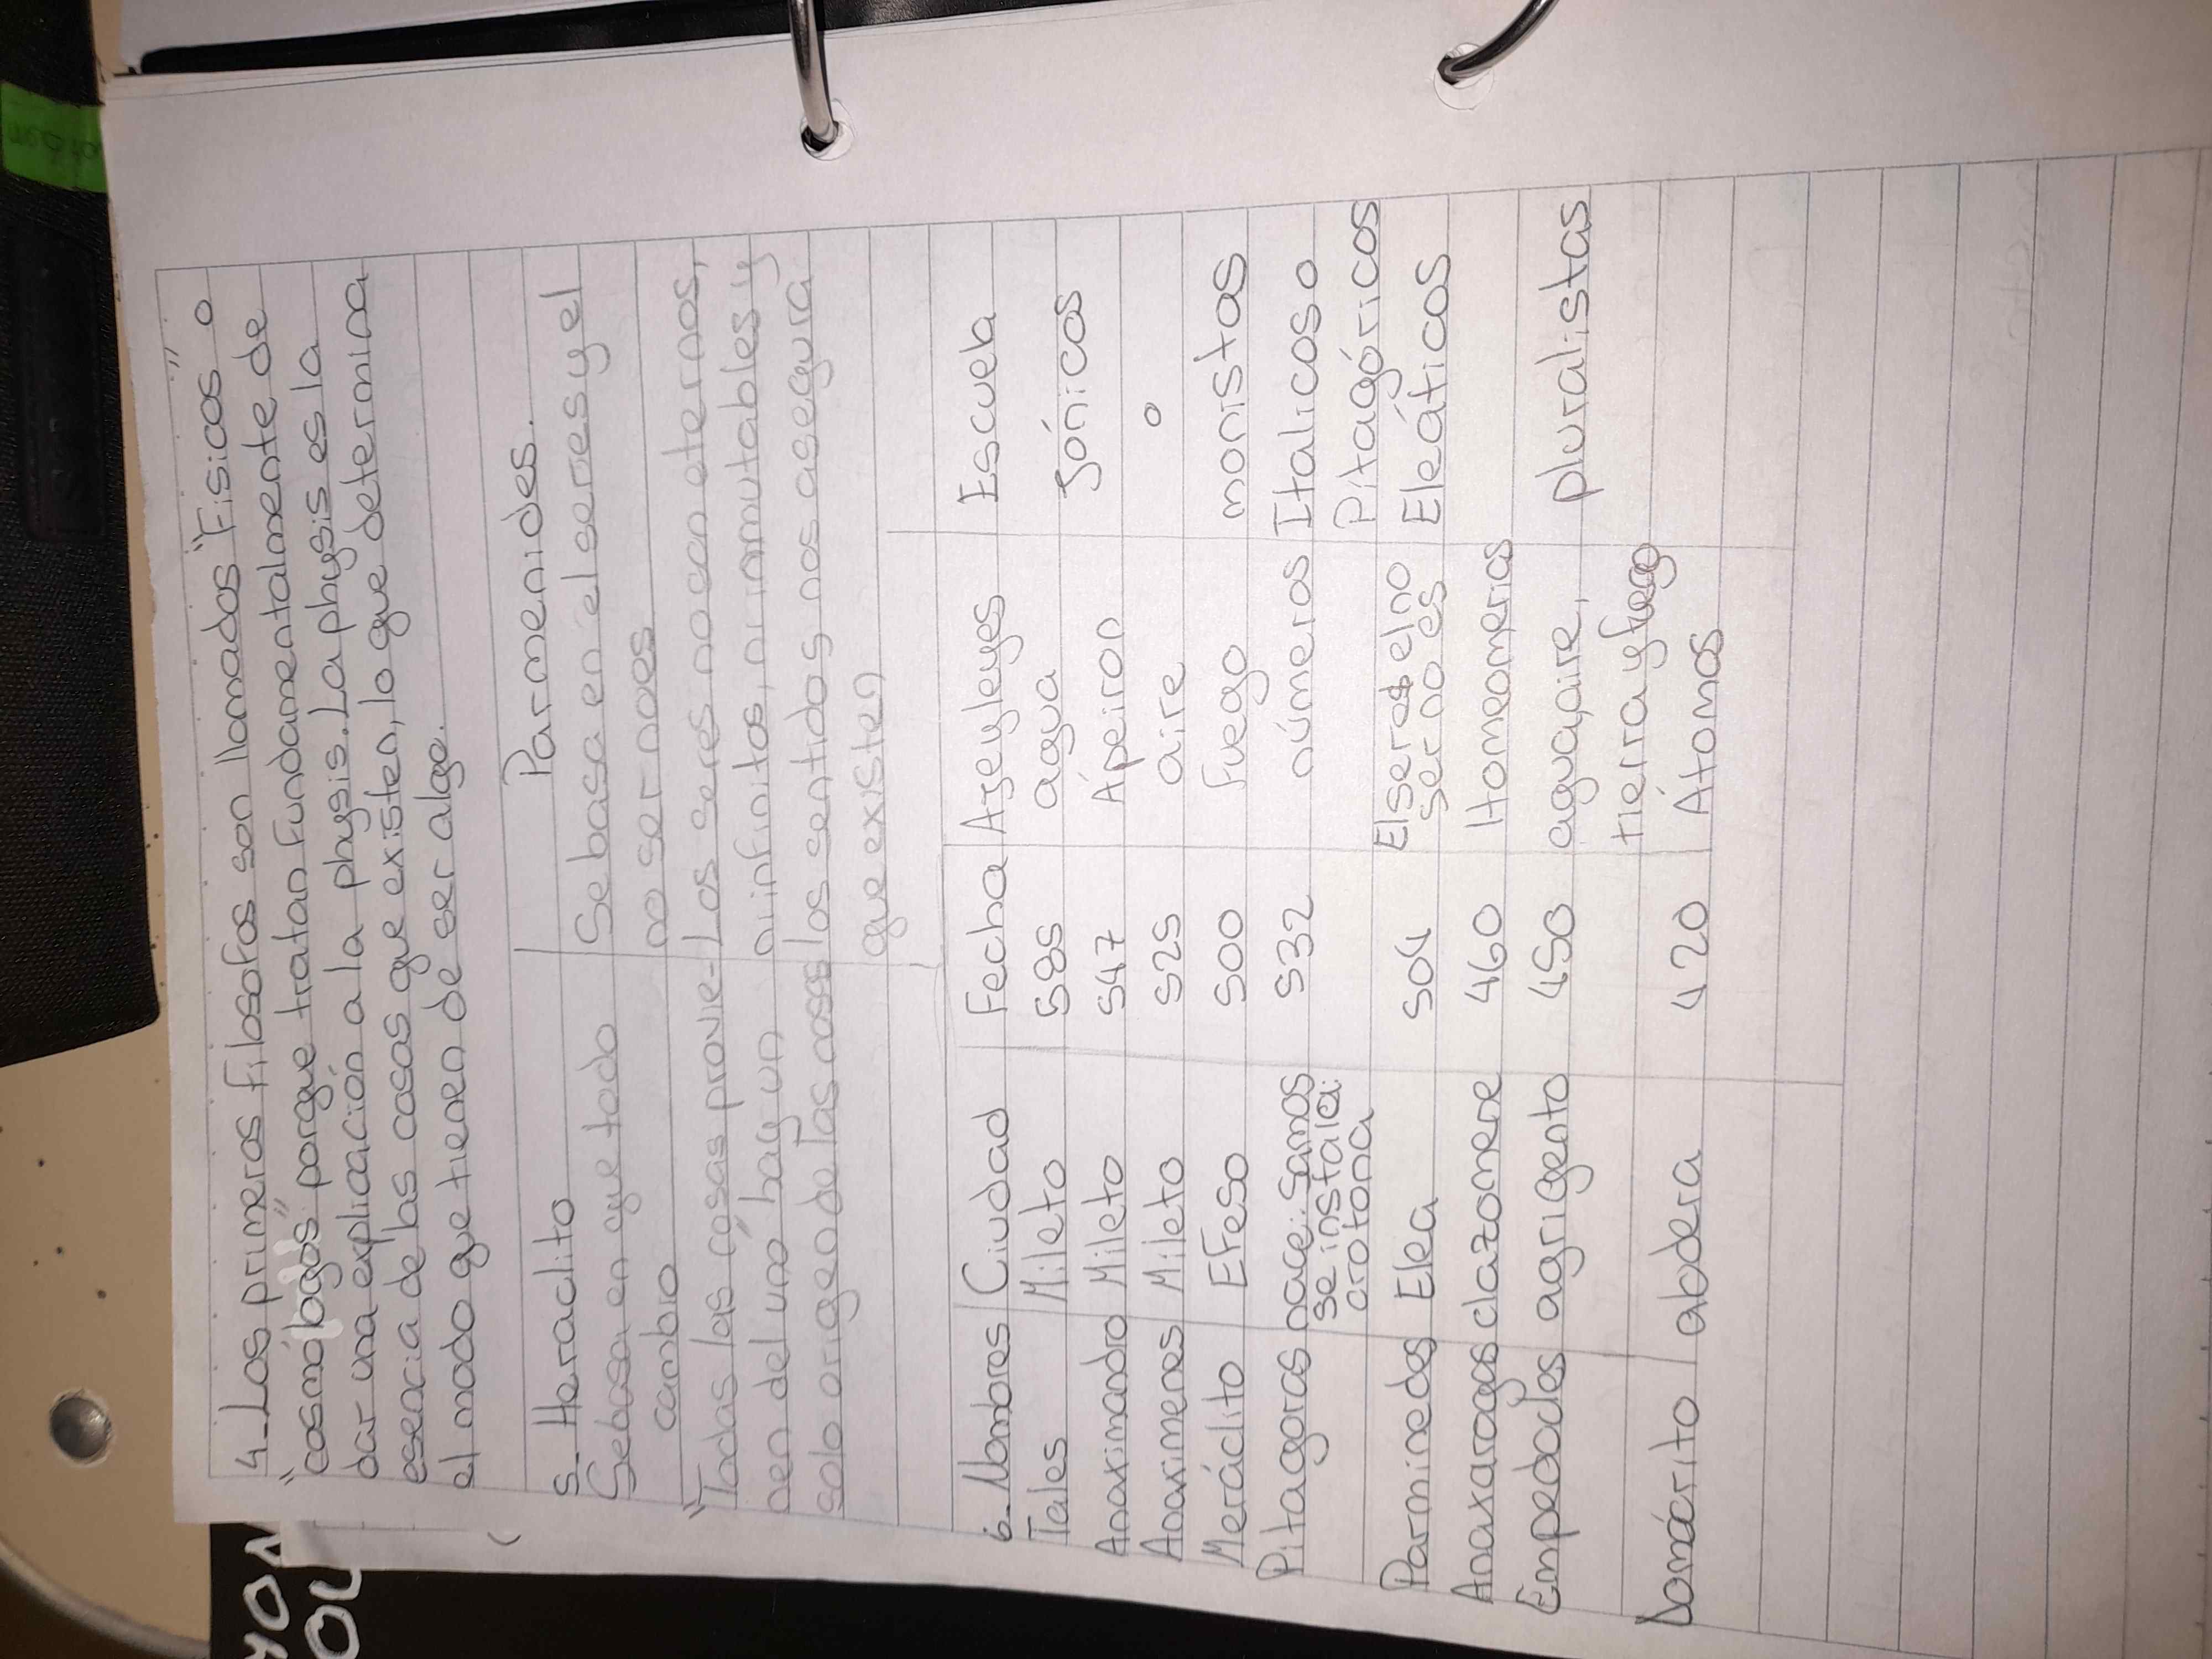 4_Los primeros filosofos son llamados "Fisicos" o
"cosmólogos" porque tratan fundamentalmente de
dar una explicación a la physis. La physis es la
esencia de las cosas que existen, lo que determina
el modo que tienen de ser algo.
5_ Heraclito | Parmenides.
Se basa en que todo | Se basa en el ser es y el
cambio | no ser no es
"Todas las cosas provie- | Los seres no con eternos,
nen del uno" hay un | ni infinitos, ni inmutables y
solo origen de las cosas | los sentidos nos asegura
que existen
6_ Nombres | Ciudad | Fecha | Arjeyleyes | Escuela
Tales | Mileto | 585 | agua | Jónicos
Anaximandro | Mileto | 547 | Ápeiron
Anaximenes | Mileto | 525 | aire | o
Meráclito | Efeso | 500 | fuego | monistas
Pitagoras | nace: Samos | 532 | números | Italicos o
se instala: | Pitagóricos
crotona
Parminedes | Elea | 504 | El ser es el no | Eleáticos
ser no es
Anaxarogas | clazomene | 460 | Homeomerias
Empedocles | agrigento | 450 | agua, aire, | pluralistas
tierra y fuego
Domócrito | abdera | 420 | Átomos